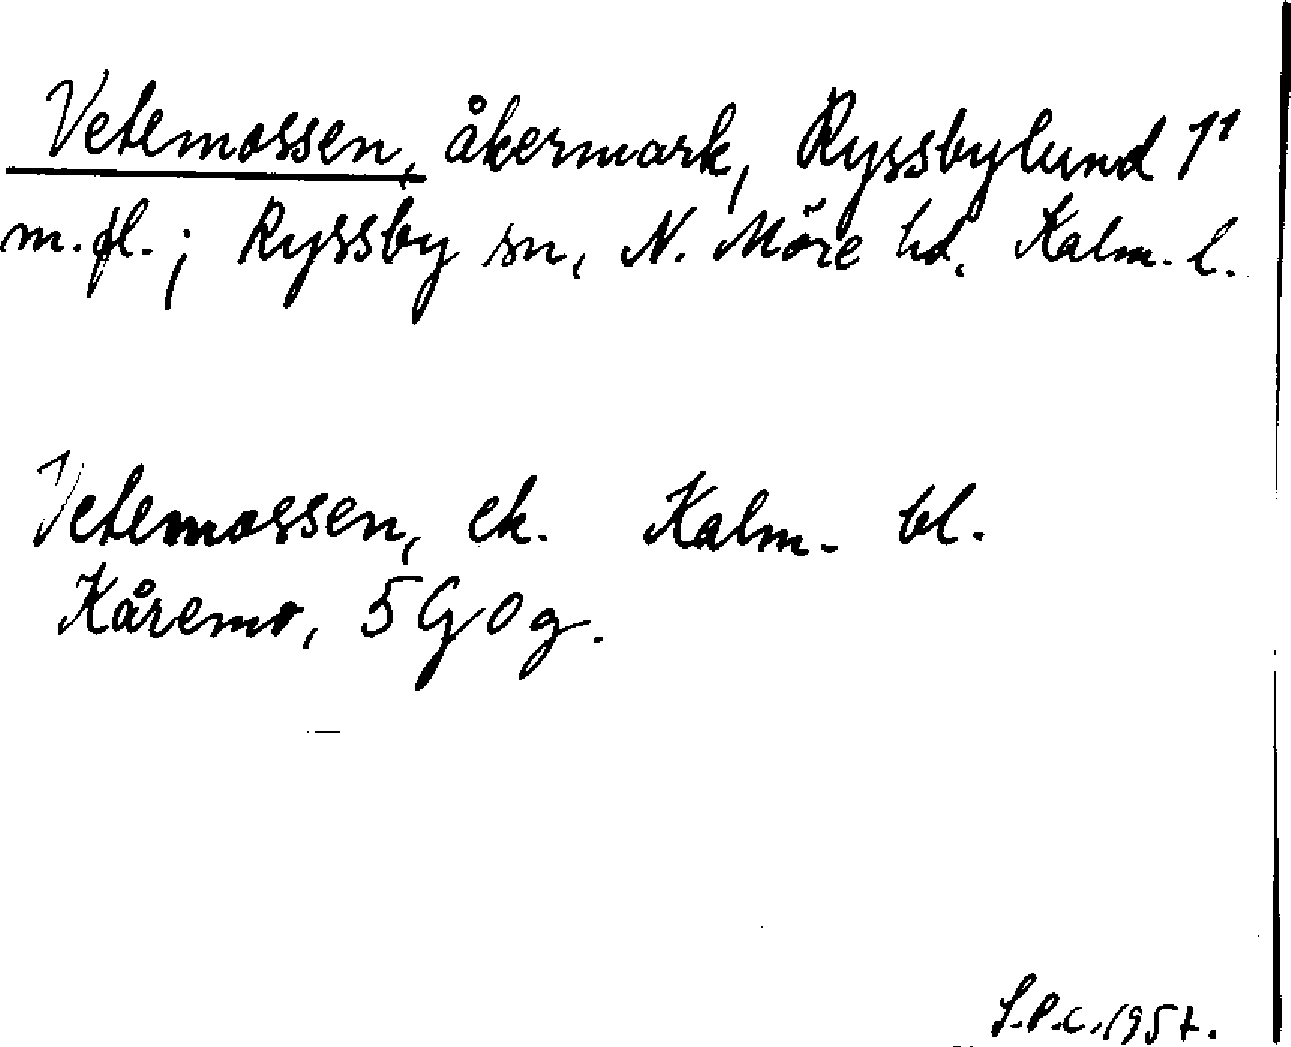 Vetemossen, åkermark, Ryssbylund 1¹
m.fl.; Ryssby sn, N. Möre hd, Kalm. l.
Vetemossen, ek. Kalm. bl.
Kåremo, 5 G 0 g.
S.P.C. 1957.